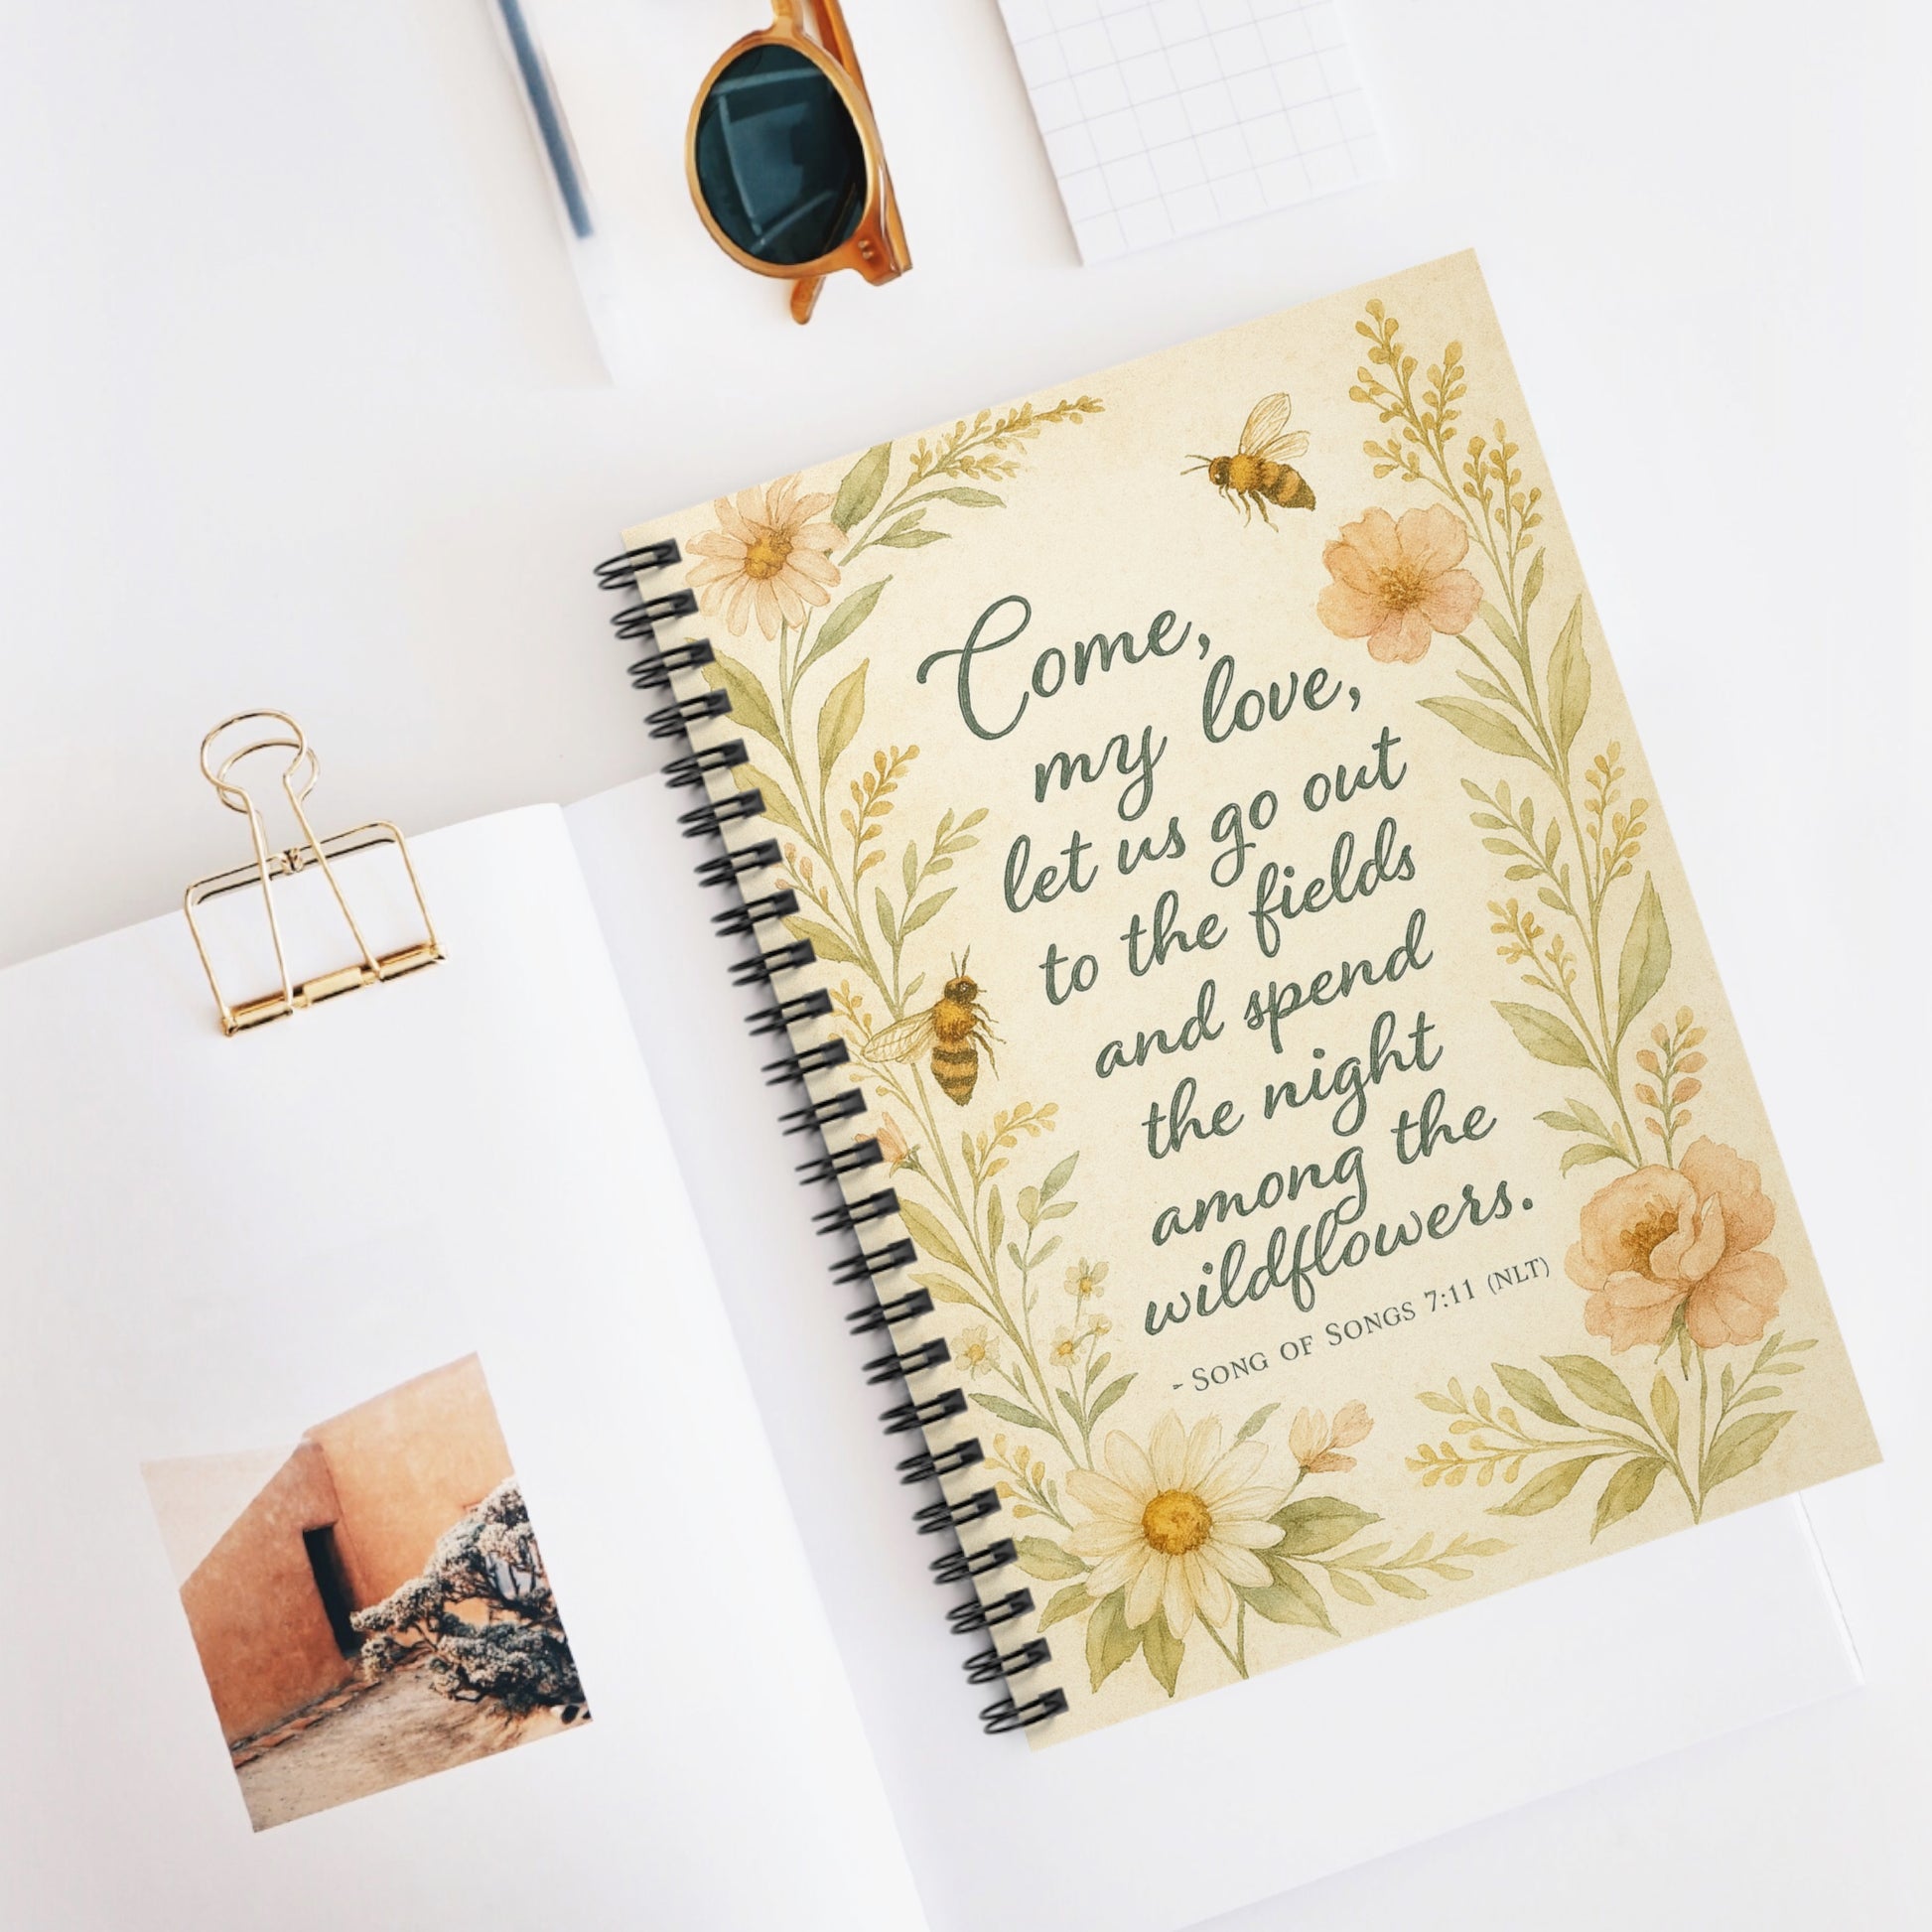 Come,
my love,
let us go out
to the fields
and spend
the night
among the
wildflowers.
- Song of Songs 7:11 (NLT)